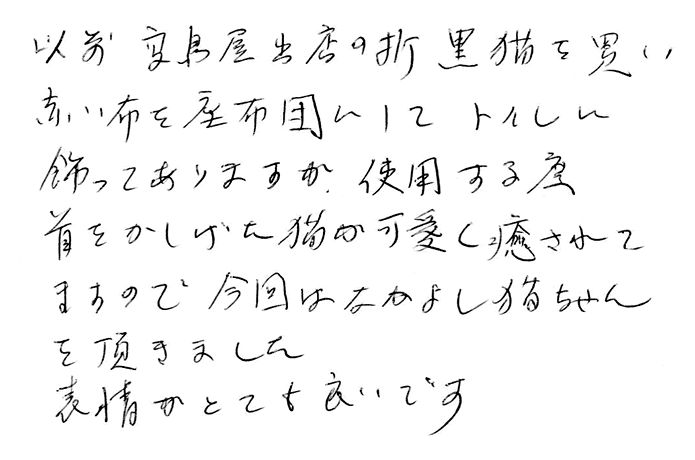 以前 高島屋出店の折 黒猫を買い
赤い布を座布団にして トイレに
飾ってありますが、使用する度
首をかしげた猫が可愛く癒されて
ますので 今回はなかよし猫ちゃん
を頂きました
表情がとても良いです